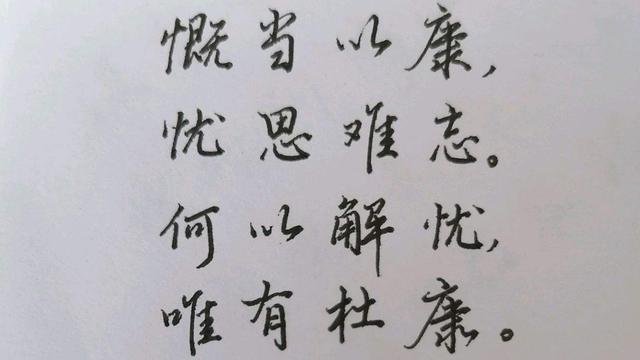 慨当以康，
忧思难忘。
何以解忧，
唯有杜康。